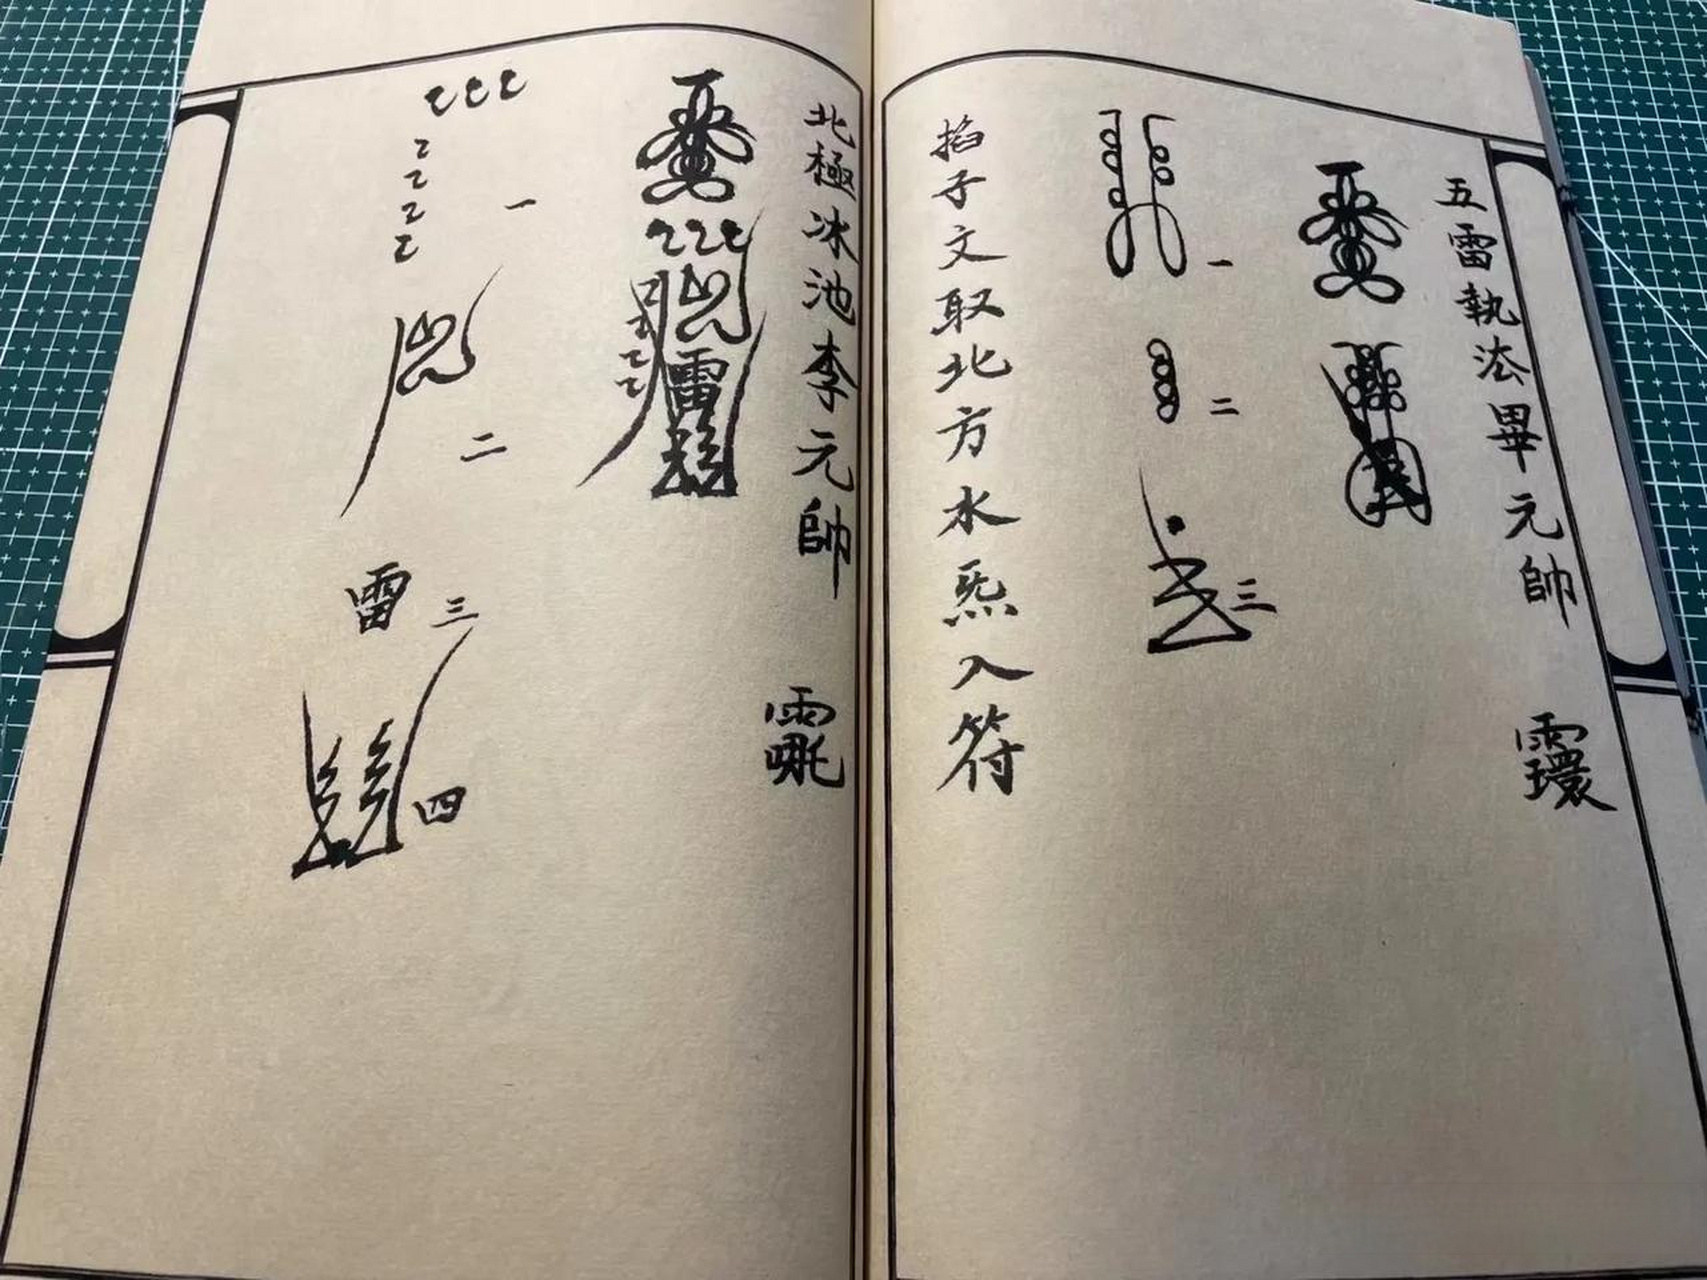 五雷執法畢元帥
一
二
三
掐子文取北方水炁入符
北極冰池李元帥
雷
一
二
雷 三
四